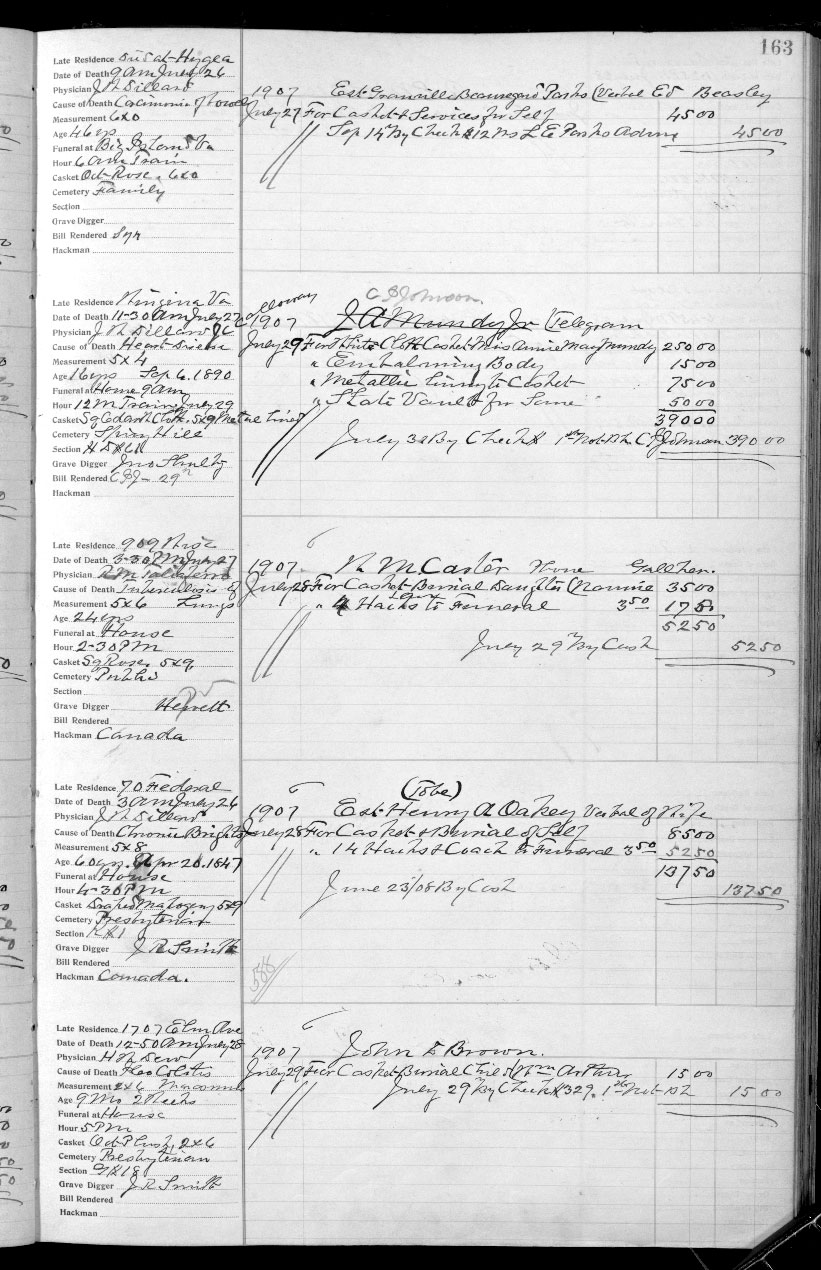 163
Late Residence
Date of Death 9 am July 26
Physician J W Dillard
Cause of Death
Measurement 6x0
Age 46 yrs
Funeral at Big Island Va
Hour 6 am Train
Casket Oct Rose. 6x0
Cemetery Family
Section
Grave Digger
Bill Rendered
Hackman
1907 Est Granville Beauregard Parks (Verbal Ed Beasley
July 27 For Casket & Services for Self 45 00
Sep 14 By Check L E Parks Admr 45 00
Late Residence Va
Date of Death 11-30 am July 27
Physician J W Dillard
Cause of Death Heart Disease
Measurement 5x4
Age 16 yrs Sep 6. 1890
Funeral at Home 9 am
Hour 12 M Train July 29
Casket Sq Cedar Cloth. 5x9 Metal Lined
Cemetery Spring Hill
Section
Grave Digger Jno Shultz
Bill Rendered CSJ - 29
Hackman
C S Johnson.
1907 J A Mundy Jr (Telegram
July 29 For White Cloth Casket Miss Annie May Mundy 250 00
" Embalming Body 15 00
" Metallic Lining to Casket 75 00
" Slate Vault for Same 50 00
390 00
July 30 By Check 1st Nat Bk C S Johnson 390 00
Late Residence 909
Date of Death 3-30 July 27
Physician
Cause of Death Tuberculosis of
Measurement 5x6 Lungs
Age 24 yrs
Funeral at House
Hour 2-30 PM
Casket Sq Rose. 5x9.
Cemetery Public
Section
Grave Digger Hewett
Bill Rendered
Hackman Canada
1907. M Carter Phone
July 28 For Casket Burial Daughter (Nannie 35 00
" Hacks to Funeral 3 50 17 50
52 50
July 29 By Cash 52 50
Late Residence 70 Federal
Date of Death 3 am July 26
Physician J W Dillard
Cause of Death Chronic Brights
Measurement 5x8
Age 60 yrs. Apr 20. 1847
Funeral at House
Hour 4-30 PM
Casket Draped Mahogeny 5x9
Cemetery Presbyterian
Section
Grave Digger J R Smith
Bill Rendered
Hackman Canada.
(Tobe)
1907 Est Henry A Oakey Verbal of Wife
July 28 For Casket & Burial of Self 85 00
" 14 Hacks & Coach to Funeral 3 50 52 50
137 50
June 23/08 By Cash 137 50
588
Late Residence 1707 Elm Ave
Date of Death 12-50 am July 28
Physician H W Dew
Cause of Death
Measurement 2x6
Age 9 Mo 2 Weeks
Funeral at House
Hour 5 PM
Casket Oct Plush, 2x6
Cemetery Presbyterian
Section
Grave Digger J R Smith
Bill Rendered
Hackman
1907 John E Brown.
July 29 For Casket Burial Child (Wm Arthur 15 00
July 29 By Check #329. 1st Nat Bk 15 00